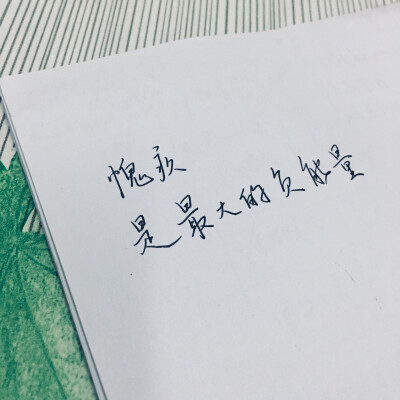 愧疚
是最大的负能量